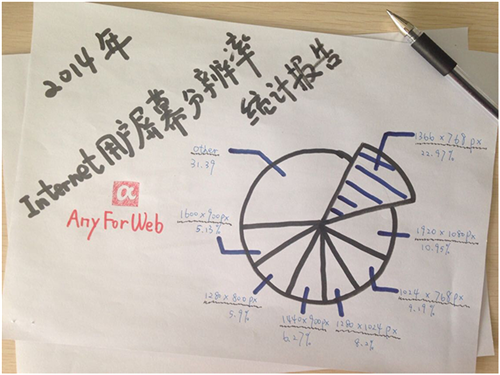 2014年
Internet用户屏幕分辨率
统计报告
α
AnyForWeb
1366 x 768 px
22.97%
other
31.39
1600 x 900 px
5.13%
1920 x 1080 px
10.95%
1280 x 800 px
5.9%
1024 x 768 px
9.19%
1440 x 900 px
6.27%
1280 x 1024 px
8.2%